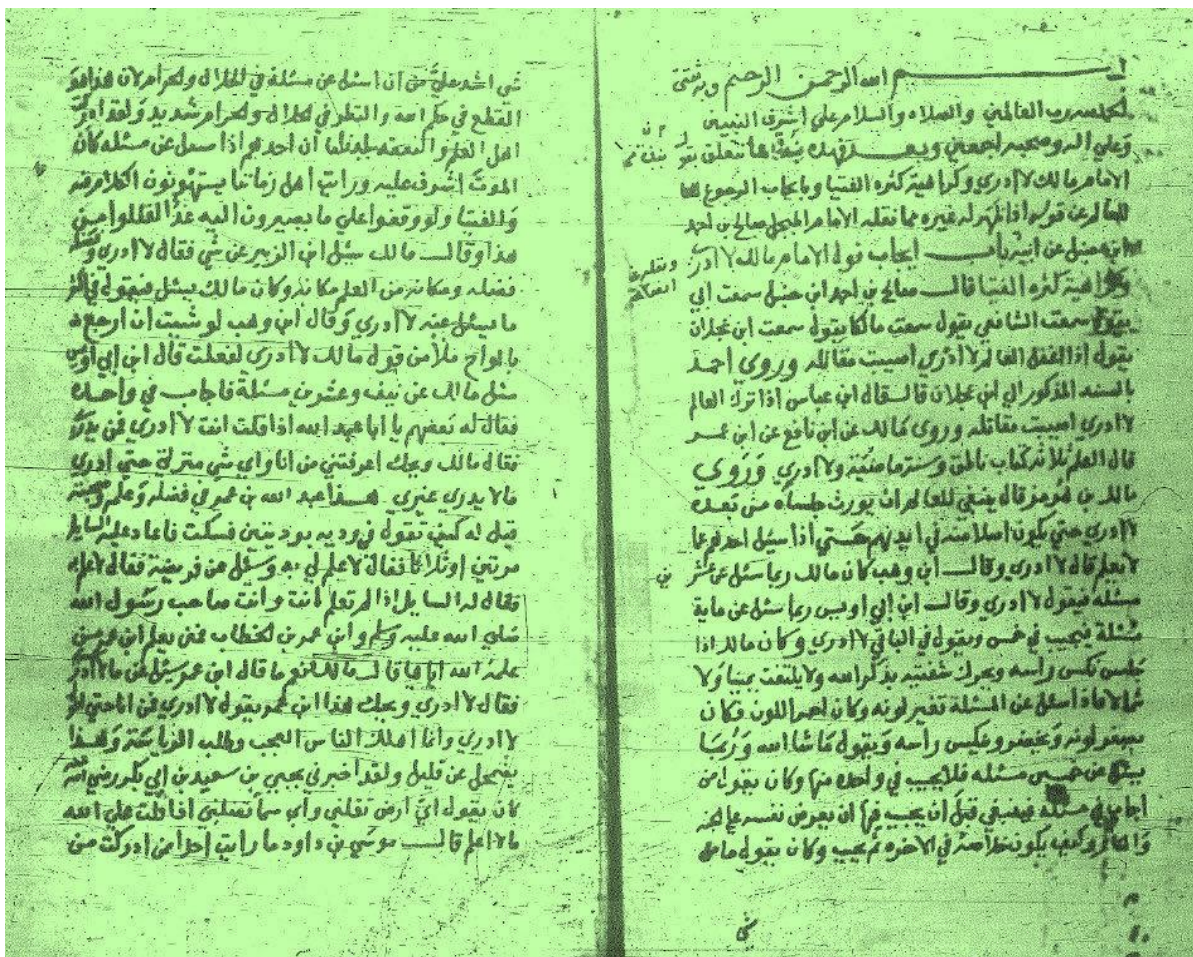 بسم الله الرحمن الرحيم وبه ثقتي
الحمد لله رب العالمين والصلاه والسلام علي اشرف النبيين
وعلي اله وصحبه اجمعين وبعد فهذه تتعلق بقول
الامام مالك لا ادري وكراهية كثره الفتيا وبايجاب الرجوع
للعالم عن قوله اذا ظهر له غيره مما نقله الامام المبجل صالح بن احمد
ابن حنبل عن ابيه باب ايجاب قول الامام مالك لا ادري
وكراهية كثره الفتيا قال صالح بن احمد ابن حنبل سمعت ابي
يقول سمعت الشافعي يقول سمعت مالكا يقول سمعت ابن عجلان
يقول اذا اغفل العالم لا ادري اصيبت مقاتله وروي احمد
بالسند المذكور الي ابن عجلان قال قال ابن عباس اذا ترك العالم
لا ادري اصيبت مقاتله وروي مالك عن ابن نافع عن ابن عمر
قال العلم ثلاثة كتاب ناطق وسنة ماضية ولا ادري وروي
مالك بن هرمز قال ينبغي للعالم ان يورث جلساه من بعده
لا ادري حتي يكون اصلا منه في ايديهم حتي اذا سئل احدهم عما
لا يعلم قال لا ادري وقال ابن وهب كان مالك ربما سئل عن عشر
مسئلة فيقول لا ادري وقال ابن ابي اويس ربما سئل عن ماية
مسئلة فيجيب في خمس ويقول في الباقي لا ادري وكان مالك اذا
جلس نكس راسه ويحرك شفتيه بذكر الله ولا يلتفت يمينا ولا
شمالا فاذا سئل عن المسئلة تغير لونه وكان احمر اللون فكان
يصفر لونه وينكس راسه ويقول ما شا الله وربما
يسئل عن خمسين مسئله فلا يجيب في واحده منها وكان يقول من
اجاب في مسئلة فينبغي قبل ان يجيب فيها ان يعرض نفسه علي الجنه
والنار وكيف يكون خلاصه في الاخره ثم يجيب وكان يقول ما من
شي
شي اشد علي من ان اسئل عن مسئلة في الحلال والحرام لان هذا هو
القطع في حكم الله والنظر في الحلال والحرام شديد ولقد ادركت
اهل العلم والفقه ببلدنا ان احدهم اذا سئل عن مسئله كان
الموت اشرف عليه ورايت اهل زماننا يستهونون الكلام فيه
والفتيا ولو وقفوا علي ما يصيرون اليه غدا لقللوا من
هذا وقال مالك سئل ابن الزبير عن شي فقال لا ادري
فضله ومكانه من العلم مكانه وكان مالك يسئل فيقول في اكثر
ما يسئل عنه لا ادري وقال ابن وهب لو شيت ان ارجع
بالواح ملا من قول مالك لا ادري لفعلت قال ابن ابي اويس
سئل مالك عن نيف وعشرين مسئلة فاجاب في واحدة
فقال له بعضهم يا ابا عبد الله اذا قلت انت لا ادري فمن يدري
فقال مالك ويحك اعرفتني من انا واي شي منزلة حتي ادري
مالا يدري غيري هذا عبد الله بن عمر في فضله وعلمه
قيل له كيف تقول في فسكت فاعاد عليه السايل
مرتين او ثلاثا فقال لا علم لي به وسئل عن فريضة فقال لا علم
فقال له السايل اذا لم تعلم انت وانت صاحب رسول الله
صلي الله عليه وسلم وابن عمر بن الخطاب فمن يعلم ابن عمر من
علمه الله اياها قال مالك نعم ما قال ابن عمر سئل عن ما لا ادري
فقال لا ادري ويحك هذا ابن عمر يقول لا ادري فمن انا حتي
لا ادري وانما اهلك الناس العجب وطلب الرياسة وهذا
يضمحل عن قليل ولقد اخبرني يحيي بن سعيد بن ابي بكر رضي الله
كان يقول اي ارض تقلني واي سما تظلني اذا قلت علي الله
مالا اعلم قال موسي بن داود ما رايت احدا ممن ادركت من